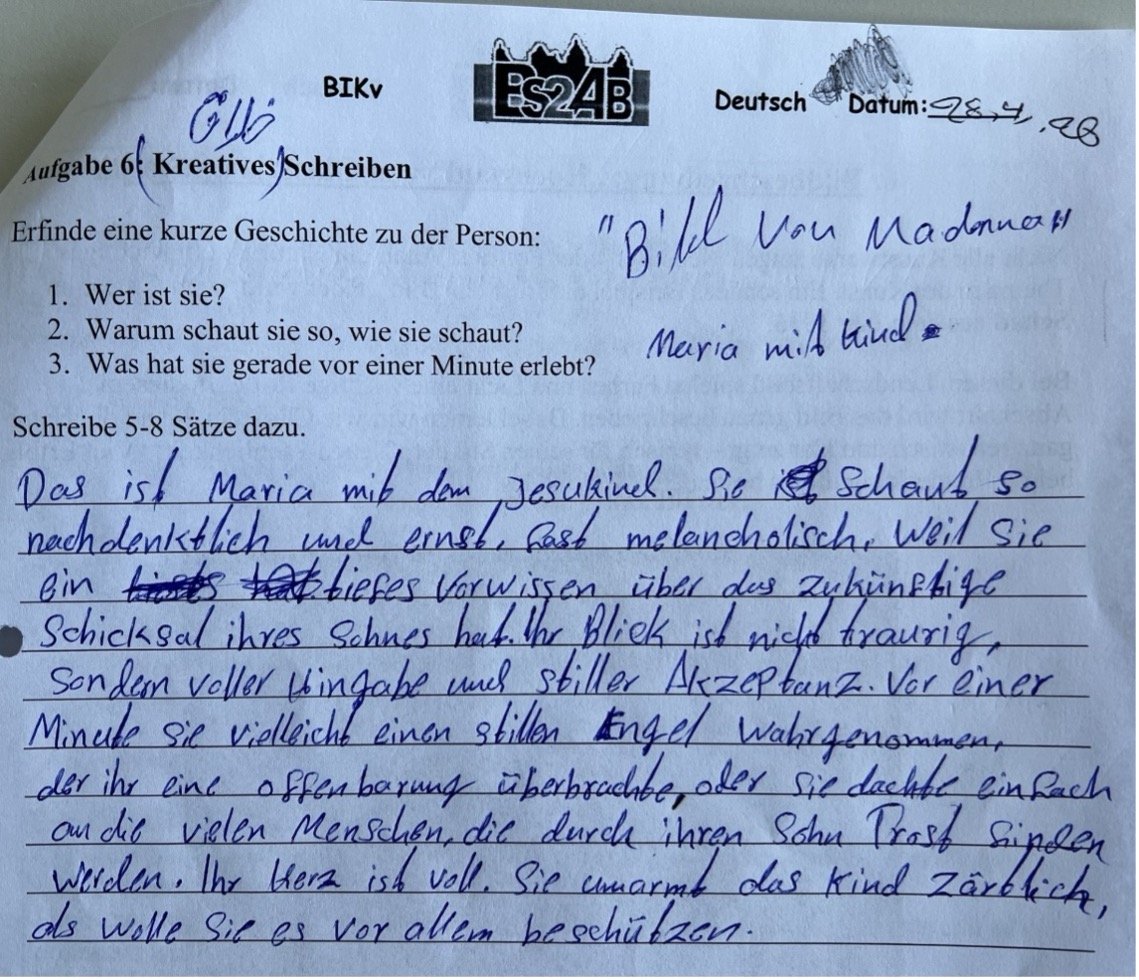 BIKv
ES2AB
Deutsch Datum: 28.4.
Aufgabe 6: (Kreatives) Schreiben
Erfinde eine kurze Geschichte zu der Person:
"Bild von Madonna"
1. Wer ist sie?
2. Warum schaut sie so, wie sie schaut?
Maria mit Kind.
3. Was hat sie gerade vor einer Minute erlebt?
Schreibe 5-8 Sätze dazu.
Das ist Maria mit dem Jesukind. Sie schaut so
nachdenktlich und ernst, fast melancholisch, weil sie
ein tiefes Vorwissen über das zukünftige
Schicksal ihres Sohnes hat. Ihr Blick ist nicht traurig,
sondern voller Hingabe und stiller Akzeptanz. Vor einer
Minute sie vielleicht einen stillen Engel wahrgenommen,
der ihr eine offenbarung überbrachte, oder sie dachte einfach
an die vielen Menschen, die durch ihren Sohn Trost finden
werden. Ihr Herz ist voll. Sie umarmt das Kind zärtlich,
als wolle sie es vor allem beschützen.